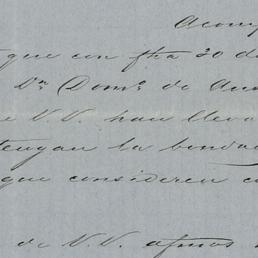 Acomp
que con fha 30 de
Dn. Domo. de Aus
e V.V. han lleva
tengan la bondad
que consideren c
de V.V. afmos